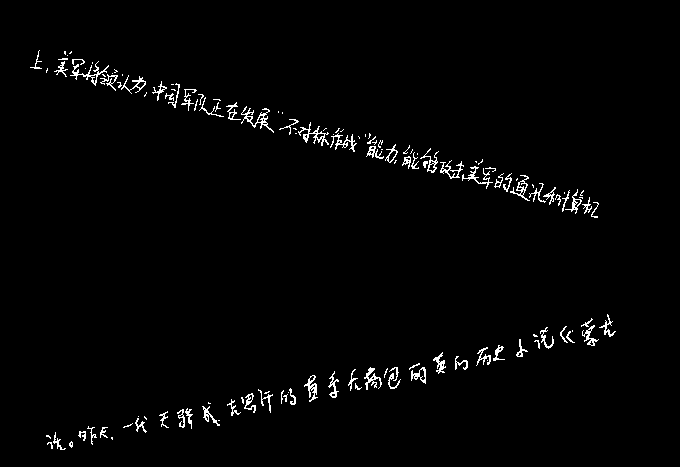 上，美军将领认为，中国军队正在发展“不对称作战”能力，能够攻击美军的通讯和计算机
话。昨天，一代天骄成吉思汗的直系后裔包丽英的历史小说《蒙古